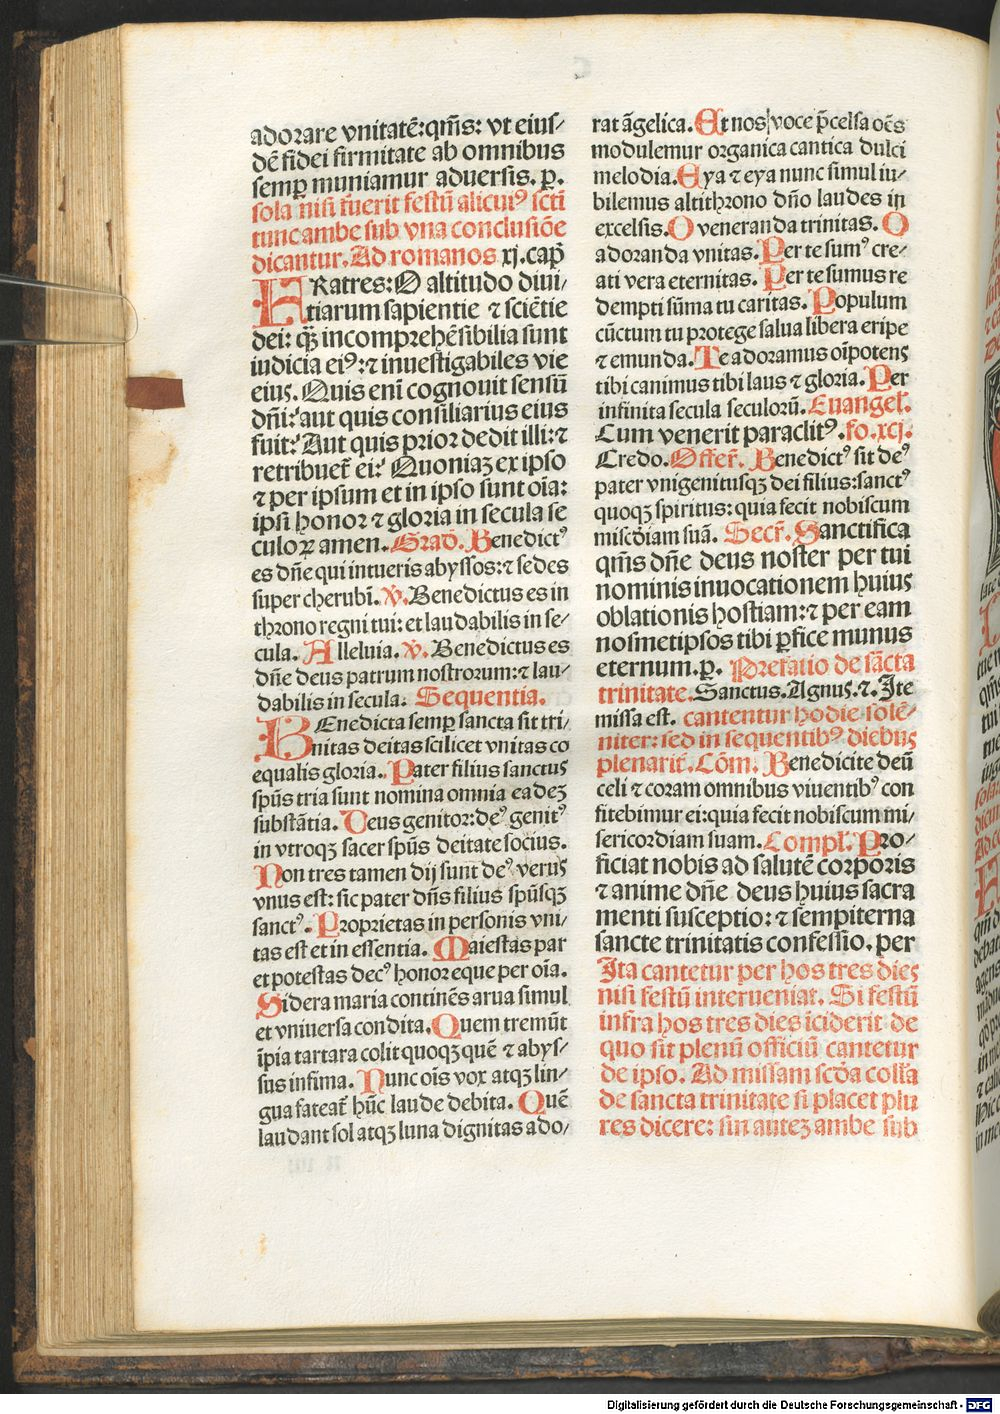 adorare vnitatē:qm̄s: vt eius⸗
dē fidei firmitate ab omnibus
semꝑ muniamur aduersis. ꝑ.
sola nisi fuerit festū alicuiꝰ scti
tunc ambe sub vna conclusiōe
dicantur. Ad romanos xj. cap̄
FRatres: O altitudo diui⸗
tiarum sapientie ⁊ sciētie
dei: q̄ꝫ incomprehēsibilia sunt
iudicia eiꝰ: ⁊ inuestigabiles vie
eius. Quis eni cognouit sensū
dn̄i: aut quis consiliarius eius
fuit: Aut quis prior dedit illi: ⁊
retribuet̄ ei: Quoniaꝫ ex ipso
⁊ per ipsum et in ipso sunt oīa:
ipsi honor ⁊ gloria in secula se
culoꝝ amen. Grad̄. Benedictꝰ
es dn̄e qui intueris abyssos: ⁊ sedes
super cherubī. ℣. Benedictus es in
throno regni tui: et laudabilis in se⸗
cula. Alleluia. ℣. Benedictus es
dn̄e deus patrum nostrorum: ⁊ lau⸗
dabilis in secula. Sequentia.
BEnedicta semꝑ sancta sit tri⸗
nitas deitas scilicet vnitas co
equalis gloria. Pater filius sanctus
spūs tria sunt nomina omnia eadeꝫ
substātia. Deus genitor: deꝰ genitꝰ
in vtroqꝫ sacer spūs deitate socius.
Non tres tamen dij sunt deꝰ verus
vnus est: sic pater dn̄s filius spūsqꝫ
sanctꝰ. Proprietas in personis vni⸗
tas est et in essentia. Maiestas par
et potestas decꝰ honor eque per oīa.
Sidera maria continēs arua simul
et vniuersa condita. Quem tremūt
īpia tartara colit quoqꝫ quē ⁊ abys⸗
sus infima. Nunc oīs vox atqꝫ lin⸗
gua fateat̄ hūc laude debita. Quē
laudant sol atqꝫ luna dignitas ado⸗
rat āgelica. Et nos voce p̄celsa oēs
modulemur organica cantica dulci
melodia. Eya ⁊ eya nunc simul iu⸗
bilemus altithrono dn̄o laudes in
excelsis. O veneranda trinitas. O
adoranda vnitas. Per te sumꝰ cre⸗
ati vera eternitas. Per te sumus re
dempti sūma tu caritas. Populum
cūctum tu protege salua libera eripe
⁊ emunda. Te adoramus oīpotens
tibi canimus tibi laus ⁊ gloria. Per
infinita secula seculorū. Euangel̄.
Cum venerit paraclitꝰ. fo. xcj.
Credo. Offer̄. Benedictꝰ sit deꝰ
pater vnigenitusqꝫ dei filius: sanctꝰ
quoqꝫ spiritus: quia fecit nobiscum
misc̄diam suā. Secr̄. Sanctifica
qm̄s dn̄e deus noster per tui
nominis inuocationem huius
oblationis hostiam: ⁊ per eam
nosmetipsos tibi ꝑfice munus
eternum. ꝑ. Prefatio de sācta
trinitate. Sanctus. Agnus. ⁊. Ite
missa est. cantentur hodie solē⸗
niter: sed in sequentibꝰ diebus
plenarit̄. Cōm. Benedicite deū
celi ⁊ coram omnibus viuentibꝰ con
fitebimur ei: quia fecit nobiscum mi⸗
sericordiam suam. Compl̄. Pro⸗
ficiat nobis ad salutē corporis
⁊ anime dn̄e deus huius sacra
menti susceptio: ⁊ sempiterna
sancte trinitatis confessio. per
Ita cantetur per hos tres dies
nisi festū interueniat. Si festū
infra hos tres dies īciderit de
quo sit plenū officiū cantetur
de ipso. Ad missam scd̄a coll̄a
de sancta trinitate si placet plu
res dicere: sin auteꝫ ambe sub
Digitalisierung gefördert durch die Deutsche Forschungsgemeinschaft - DFG